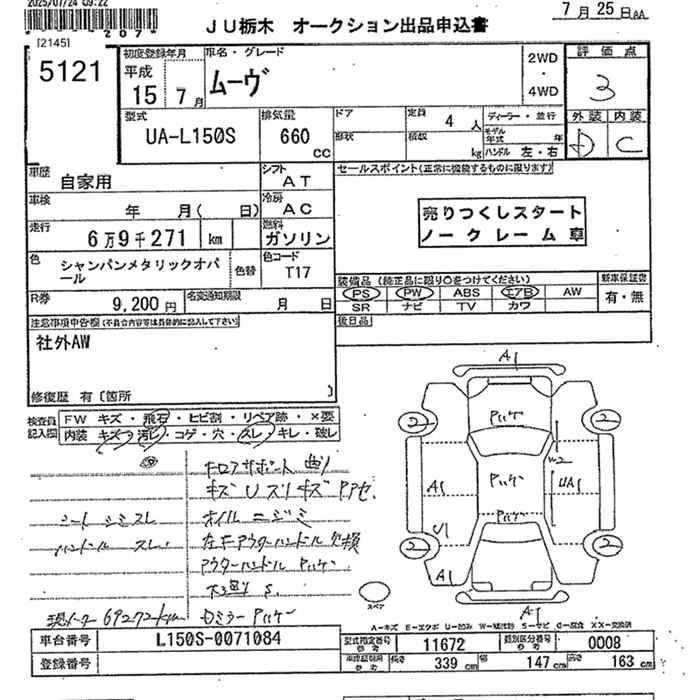 2025/07/24 09:22
207
JU栃木 オークション出品申込書
7月25日
[2145]
5121
初度登録年月
平成
15 7月
車名・グレード
ムーヴ
2WD
・
4WD
評価点
3
外装 内装
D C
型式
UA-L150S
排気量
660
cc
ドア
形状
定員
4 人
積載
kg
ディーラー・並行
モデル年式 年
ハンドル 左・右
車歴
自家用
シフト
AT
セールスポイント(正常に機能するものに限ります)
売りつくしスタート
ノークレーム車
車検
年 月( 日)
冷房
AC
走行
6万9千271 km
燃料
ガソリン
色
シャンパンメタリックオパール
色替
色コード
T17
装備品 (純正品に限り○をつけてください)
PS PW ABS エアB AW
SR ナビ TV カワ
新車保証書
有・無
R券
9,200円
名変通知期限
月 日
後日品
注意事項申告欄(不具合内容等は具体的に記入して下さい)
社外AW
修復歴 有〔箇所 〕
検査員記入欄
FW キズ・飛石・ヒビ割・リペア跡・×要
内装 キズ・汚レ・コゲ・穴・スレ・キレ・破レ
キズUズリキズ
シート シミスレ
オイルニジミ
ハンドル スレ
左Fアウターハンドル欠損
アウターハンドル
現メーター 69272km
A1
2
2
W2
A1
UA1
U1
2
2
A1
A1
スペア
A-キズ E-エクボ U-凹み W-補修跡 S-サビ C-腐食 XX-交換済
車台番号
L150S-0071084
型式指定番号
参考
11672
類別区分番号
参考
0008
登録番号
長さ 339 cm
幅 147 cm
高さ 163 cm